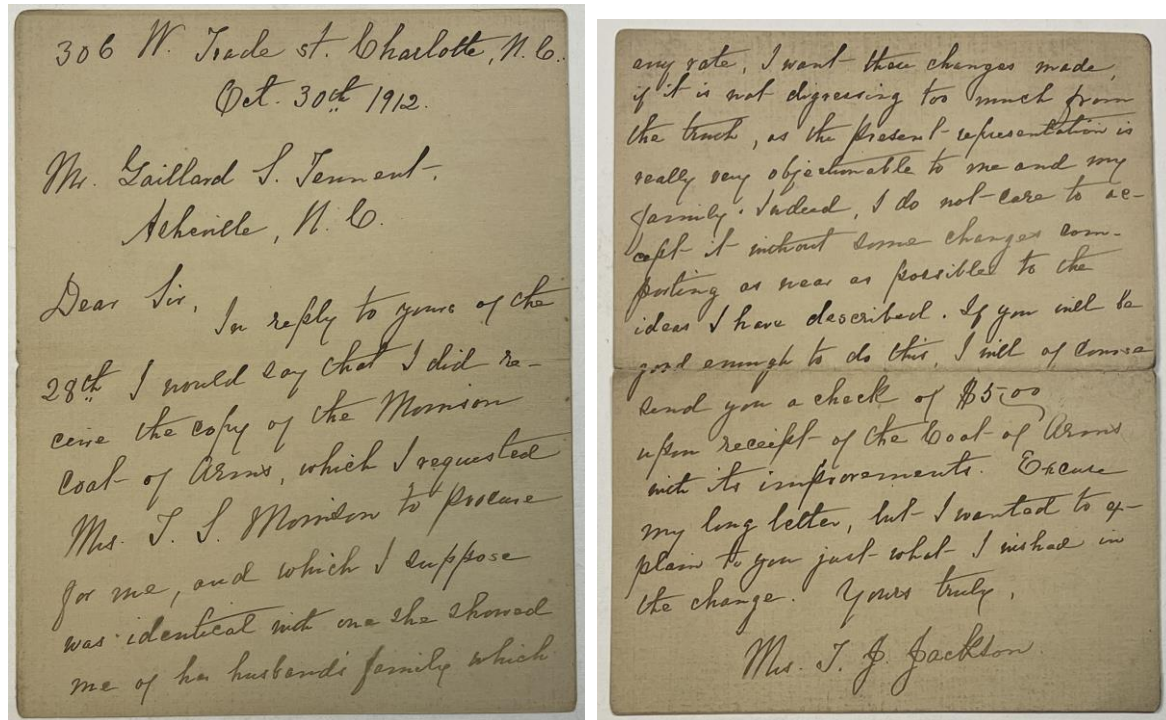 306 W. Trade st. Charlotte, N.C.
Oct. 30th 1912.
Mr. Gaillard S. Tennent,
Asheville, N.C.
Dear Sir,
In reply to yours of the
28th I would say that I did re-
ceive the copy of the Morrison
coat of Arms, which I requested
Mrs. T. S. Morrison to procure
for me, and which I suppose
was identical with one she showed
me of her husband's family which
any rate, I want these changes made,
if it is not digressing too much from
the truth, as the present representation is
really very objectionable to me and my
family. Indeed, I do not care to ac-
cept it without some changes com-
porting as near as possible to the
ideas I have described. If you will be
good enough to do this, I will of course
send you a check of $5.00
upon receipt of the Coat of Arms
with its improvements. Excuse
my long letter, but I wanted to ex-
plain to you just what I wished in
the change. Yours truly,
Mrs. T. J. Jackson